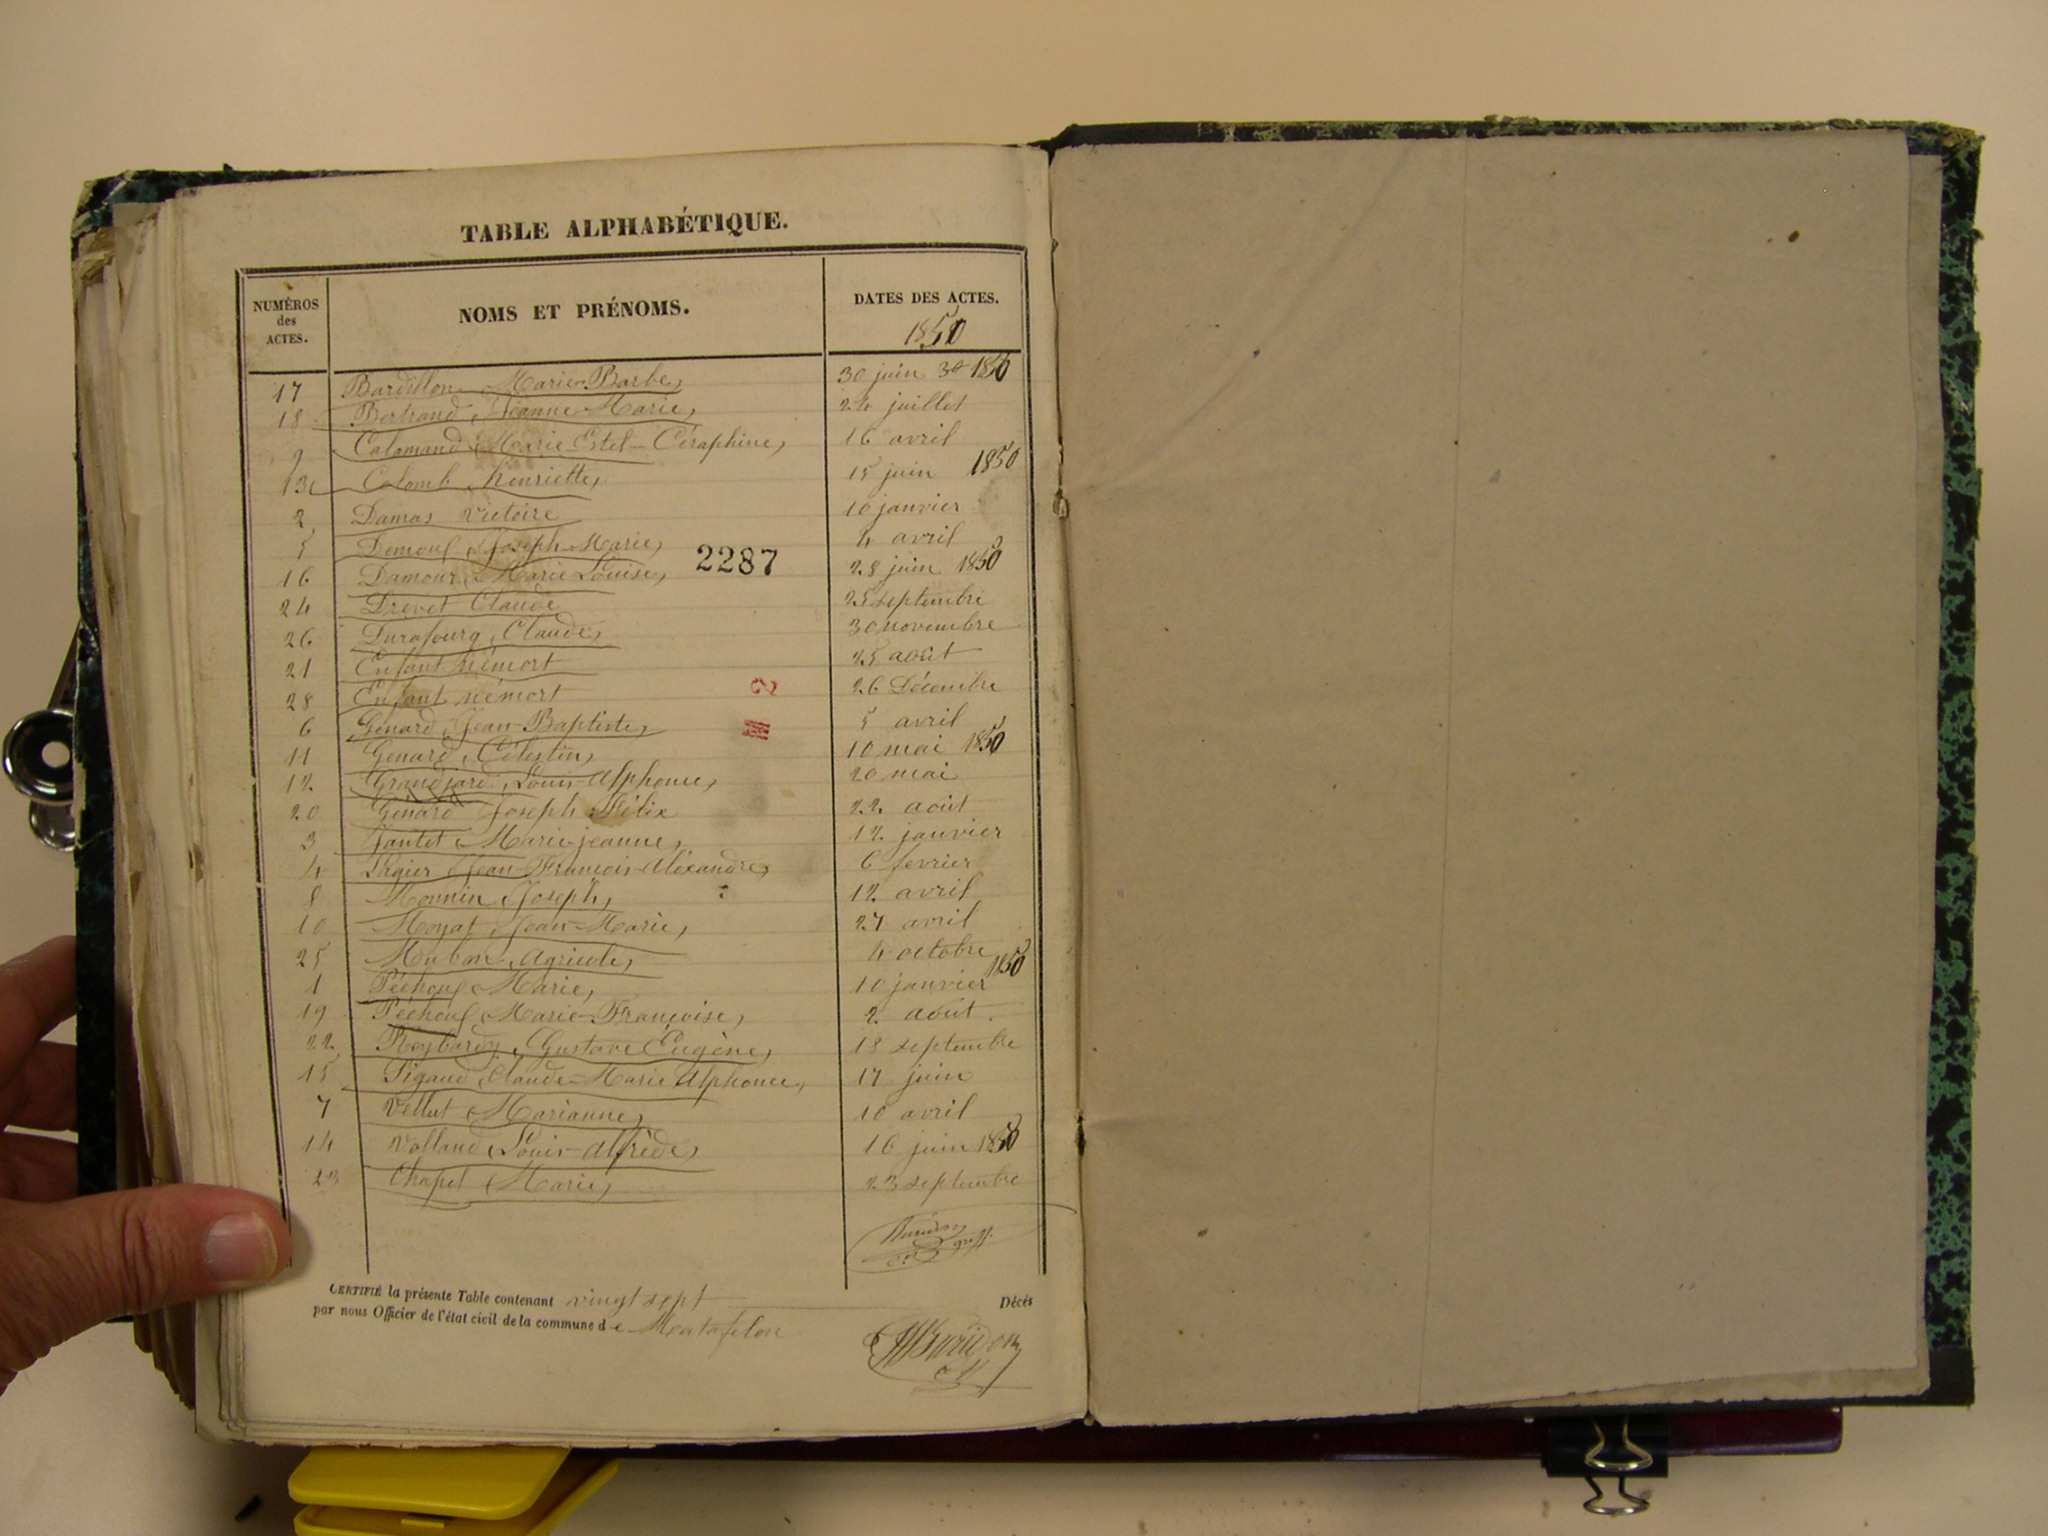 TABLE ALPHABÉTIQUE.
NUMÉROS des ACTES. NOMS ET PRÉNOMS. DATES DES ACTES.
1850
17 Bardillon Marie Barbe 30 juin 1850
18 Bertrand Jeanne Marie 24 juillet
9 Calamand Marie Estel Céraphine 16 avril
13 Colomb henriette 15 juin 1850
2 Damas Victoire 10 janvier
5 Demouf Joseph Marie 4 avril
16 Damour Marie Louise 28 juin 1850
2287
24 Drevet Claude 25 septembre
26 Durafourg Claude 30 novembre
21 Enfant némort 25 août
28 Enfant némort 26 Décembre
6 Génard Jean-Baptiste 5 avril
11 Génard Célestin 10 mai 1850
12 Grandjard Louis-Alphonse 20 mai
20 Génard Joseph Félix 22 août
3 Jantet Marie-jeanne 12 janvier
4 Jean François Aléxandre 6 fevrier
8 Monnin Joseph 12 avril
10 Moyat Jean-Marie 27 avril
25 Agricole 4 octobre
1 Péchouf Marie 10 janvier 1850
19 Péchouf Marie-Françoise 2 août
22 Reybardy Gustave Eugène 18 septembre
15 Pigaud Claude-Marie Alphonse 17 juin
7 Vellut Marianne 10 avril
14 Volland Louis-Alfrède 16 juin 1850
23 Chapel Marie 23 septembre
CERTIFIÉ la présente Table contenant vingt sept Décès
par nous Officier de l'état civil de la commune de Matafelon